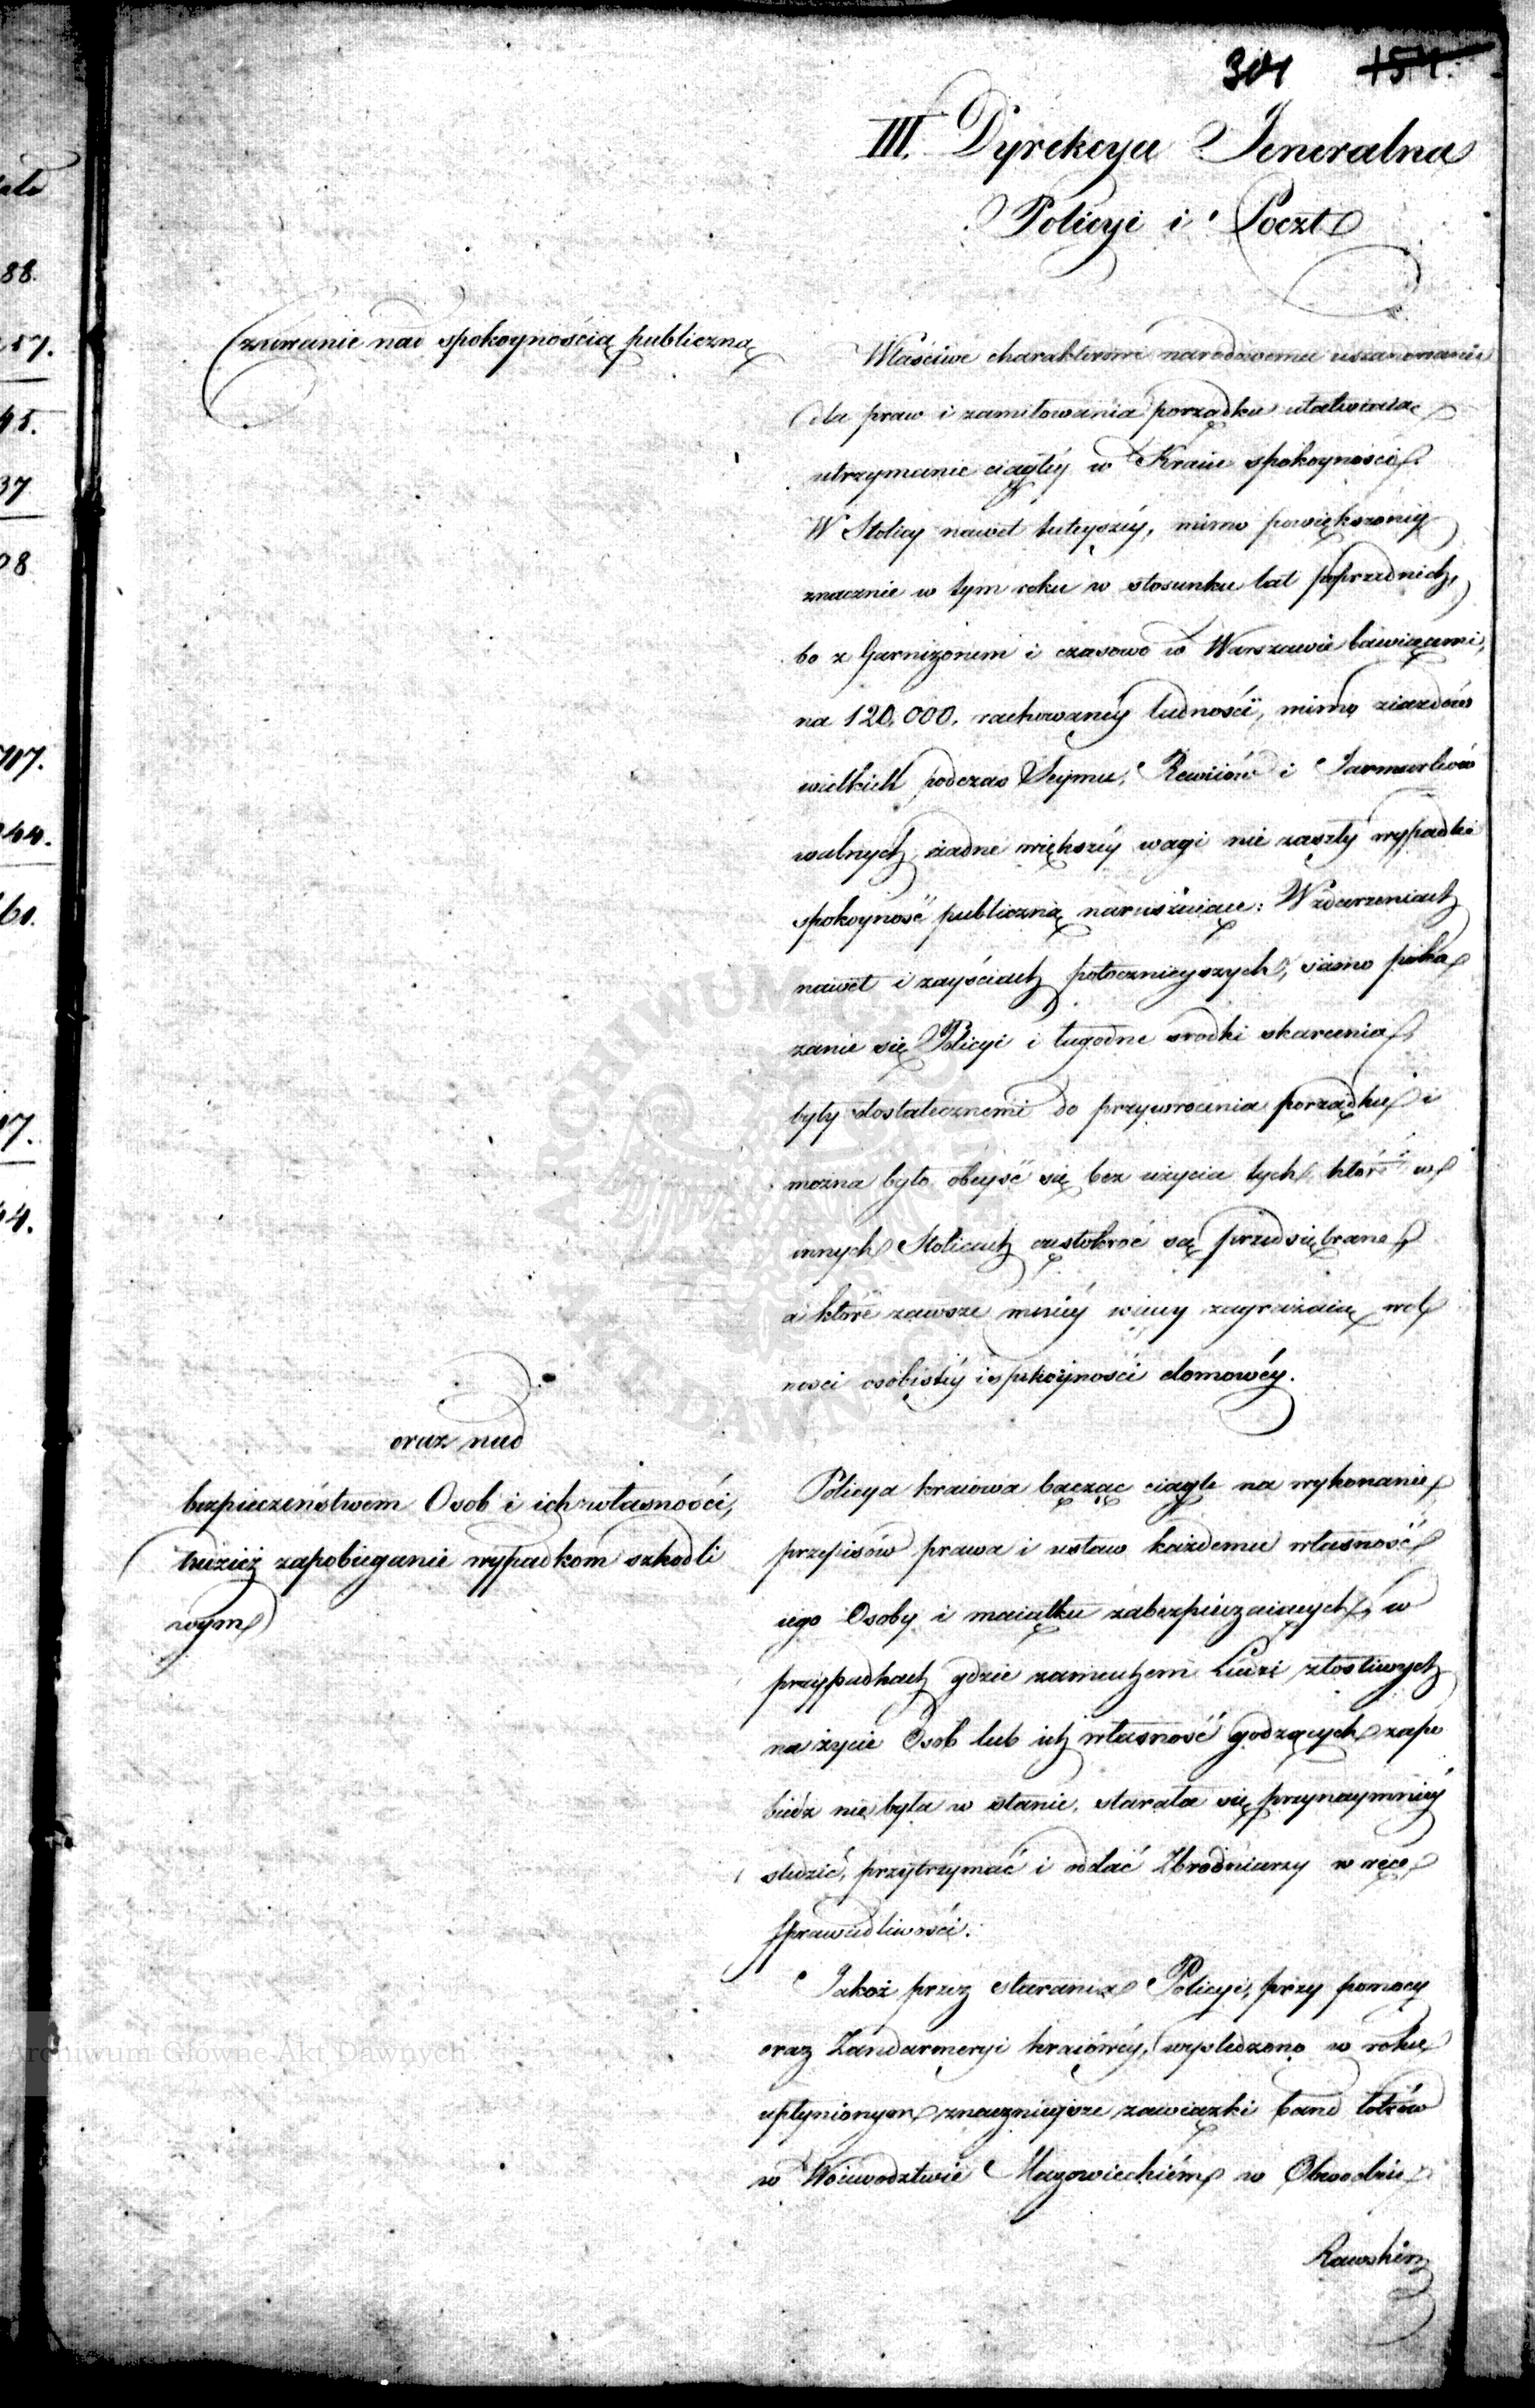 301 154.
III. Dyrekcya Jeneralna
Policyi i Poczt
Czuwanie nad spokoynością publiczną
Właściwe charakterowi narodowemu uszanowanie
dla praw i zamiłowania porządku ułatwiała
utrzymanie ciągłéy w Kraiu spokoyności.
W Stolicy nawet tuteyszéy, mimo powiększonéy
znacznie w tym roku w stosunku lat poprzednich,
bo z Garnizonem i czasowo w Warszawie bawiącemi,
na 120,000. rachowanéy ludności, mimo ziazdów
wielkich podczas Seymu, Rewiiów i Jarmarków
walnych, żadne większéy wagi nie zaszły wypadki
spokoyność publiczną naruszaiące: W zdarzeniach
nawet i zayściach potocznieyszych, samo poka
zanie się Policyi i łagodne srodki skarcenia,
były dostatecznemi do przywrócenia porządku i
można było obeyść się bez użycia tych, które w
innych Stolicach częstokroć są przedsiębrane,
a które zawsze mniéy więcy zagrażaią wol
ności osobistéy i spokoyności domowéy.
oraz nad
bezpieczeństwem Osob i ich własności,
tudzież zapobieganie wypadkom szkodli
wym
Policya kraiowa bacząc ciągle na wykonanie
przepisów prawa i ustaw każdemu własność
iego Osoby i maiątku zabezpieczaiących, w
przypadkach gdzie zamachom Ludzi złośliwych
na życie Osob lub ich własność godzących zapo
biedz nie była w stanie, starała się przynaymniéy
śledzić, przytrzymać i oddać Zbrodniarzy w ręce
Sprawiedliwości.
Jakoż przez starania Policyi, przy pomocy
oraz Żandarmeryi kraiowéy, wyśledzono w roku
upłynionym znacznieysze zawiązki band łotrów
w Woiewództwie Mazowieckiém w Obwodzie
Rawskim
Archiwum Główne Akt Dawnych